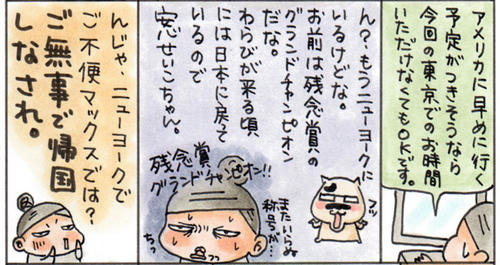 アメリカに早めに行く
予定がつきそうなら
今回の東京でのお時間
いただけなくてもOKです。
ん？もうニューヨークに
いるけどな。
お前は残念賞の
グランドチャンピオン
だな。
わらびが来る頃
には日本に戻て
いるので
せいこちゃん。
残念賞
グランドチャンピオン!!
フッ
またいらぬ
称号が…
ちっ
んじゃ、ニューヨークで
ご不便マックスでは？
ご無事で帰国
しなされ。